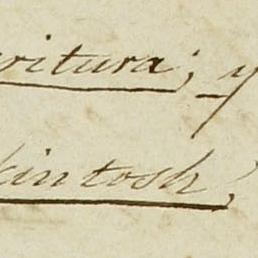 ritura; y
kintosh;